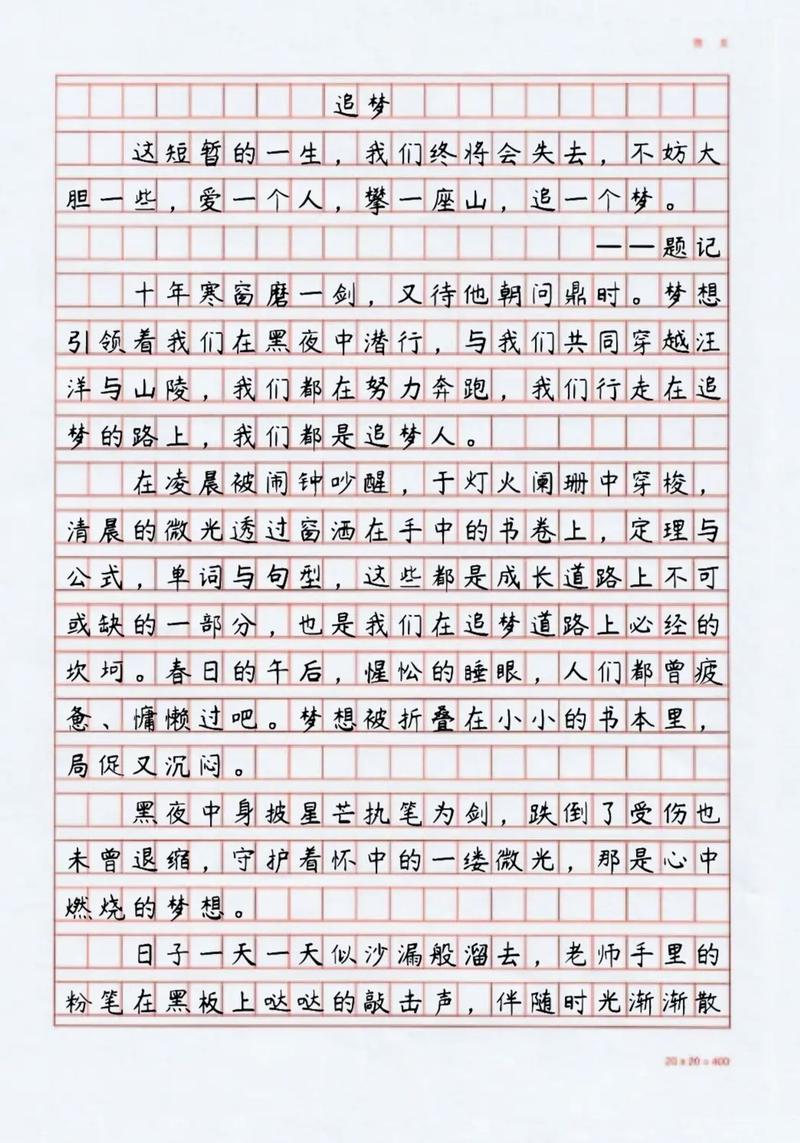 追梦
这短暂的一生，我们终将会失去，不妨大
胆一些，爱一个人，攀一座山，追一个梦。
——题记
十年寒窗磨一剑，又待他朝问鼎时。梦想
引领着我们在黑夜中潜行，与我们共同穿越汪
洋与山陵，我们都在努力奔跑，我们行走在追
梦的路上，我们都是追梦人。
在凌晨被闹钟吵醒，于灯火阑珊中穿梭，
清晨的微光透过窗洒在手中的书卷上，定理与
公式，单词与句型，这些都是成长道路上不可
或缺的一部分，也是我们在追梦道路上必经的
坎坷。春日的午后，惺忪的睡眼，人们都曾疲
惫、慵懒过吧。梦想被折叠在小小的书本里，
局促又沉闷。
黑夜中身披星芒执笔为剑，跌倒了受伤也
未曾退缩，守护着怀中的一缕微光，那是心中
燃烧的梦想。
日子一天一天似沙漏般溜去，老师手里的
粉笔在黑板上哒哒的敲击声，伴随时光渐渐散
20×20=400